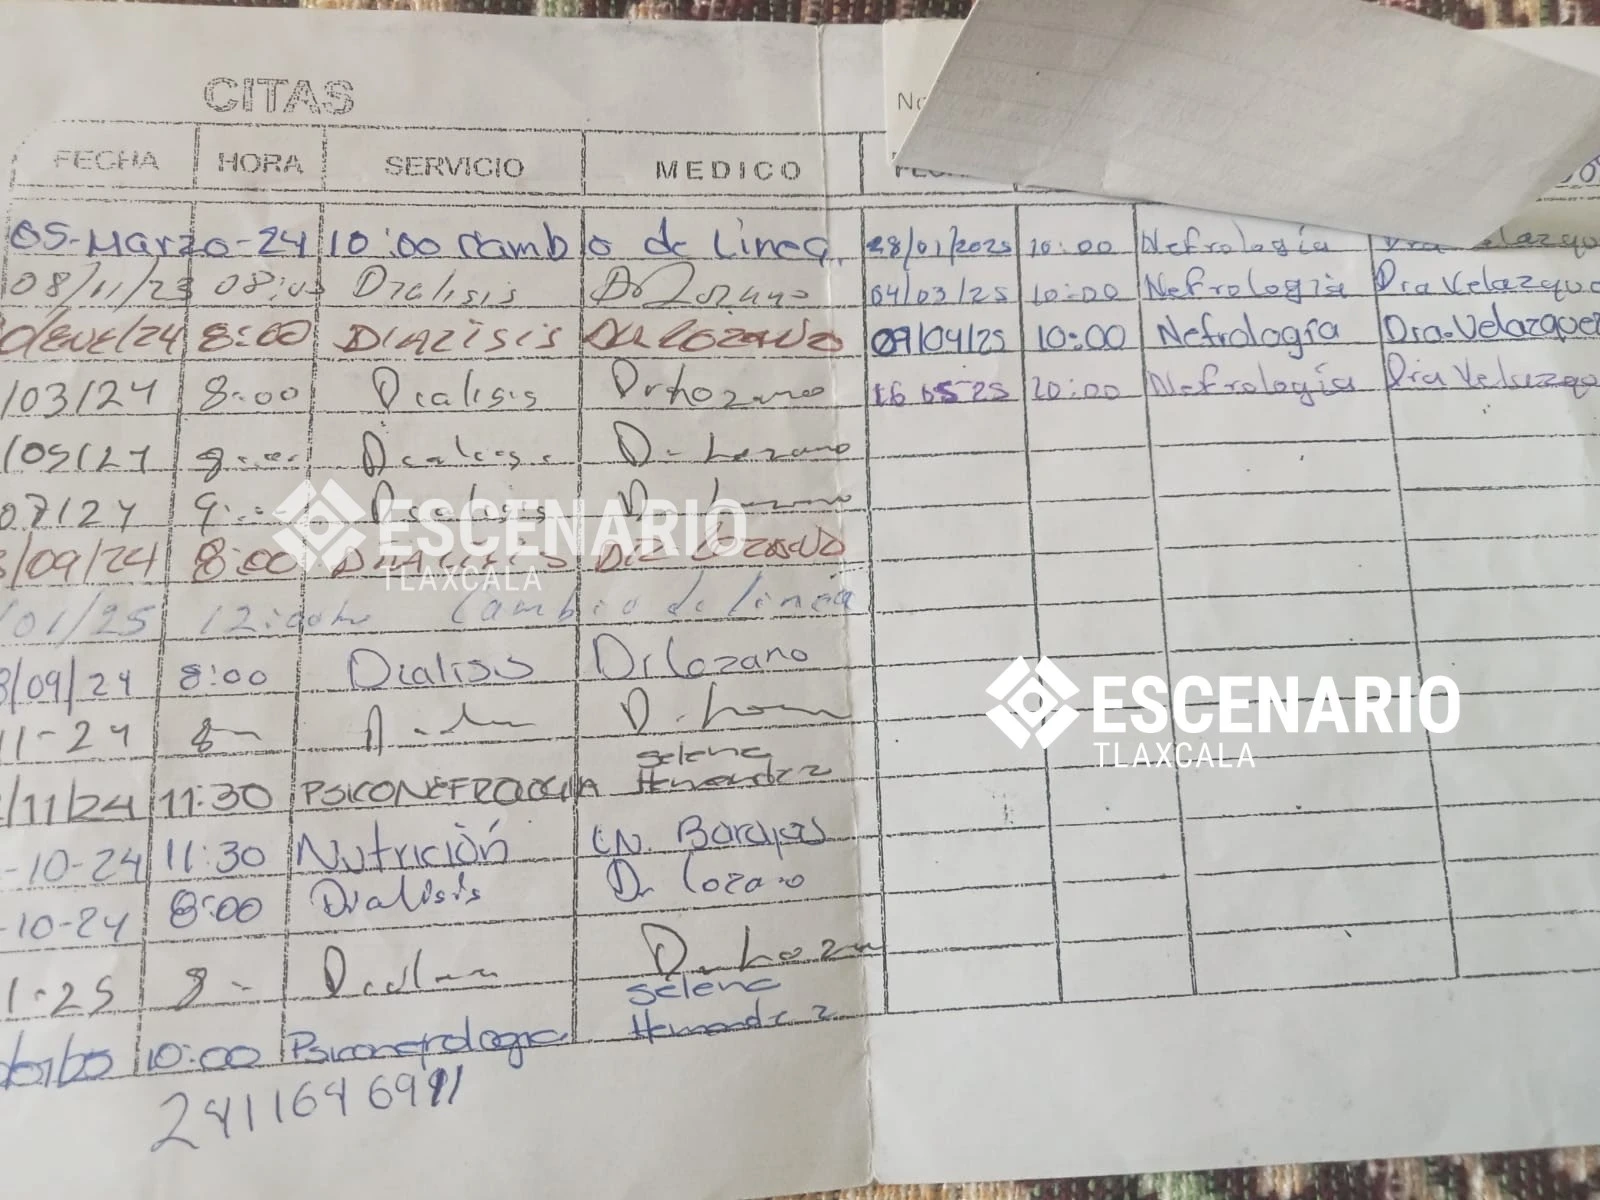 CITAS
FECHA HORA SERVICIO MEDICO
05-Marzo-24 10:00 Cambio de linea.
08/11/23 08:00 Dialisis Dr Lozano
/ene/24 8:00 DIALISIS DR LOZANO
/03/24 8:00 Dialisis Dr Lozano
/05/24 8:00 Dialisis Dr Lozano
07/24 Dialisis Dr Lozano
/09/24 8:00 DIALISIS DR LOZANO
/01/25 12:00 hrs Cambio de linea
/09/24 8:00 Dialisis Dr Lozano
11-24 8 Dr Lozano
/11/24 11:30 PSICONEFROLOGIA Selene Hernandez
-10-24 11:30 Nutrición LN. Barajas
-10-24 8:00 Dialisis Dr Lozano
1-25 8 Dr Lozano
10:00 Psiconefrologia Selene Hernandez
No
28/01/2025 10:00 Nefrología Velazqu
04/03/25 10:00 Nefrologia Dra Velazque
09/04/25 10:00 Nefrología Dra. Velazquez
16 05 25 10:00 Nefrología Dra Velazqu
ESCENARIO
TLAXCALA
ESCENARIO
TLAXCALA